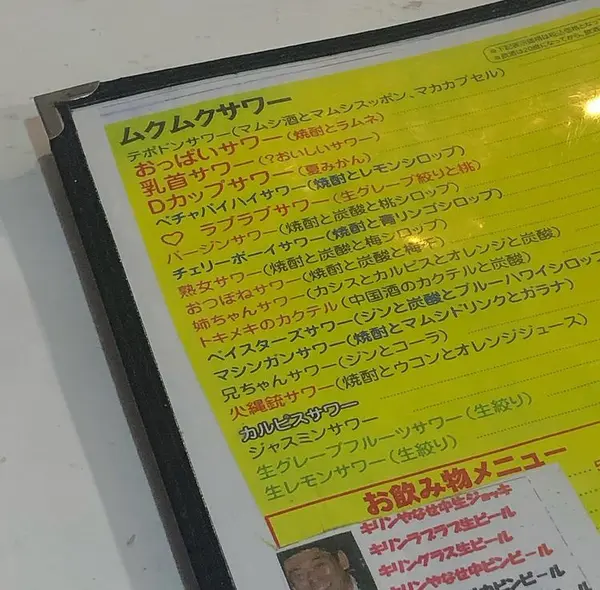 ムクムクサワー
テポドンサワー(マムシ酒とマムシスッポン、マカカプセル)
おっぱいサワー(焼酎とラムネ)
乳首サワー(?おいしいサワー)
Dカップサワー(夏みかん)
ペチャパイハイサワー(焼酎とレモンシロップ)
♡ ラブラブサワー(生グレープ絞りと桃)
バージンサワー(焼酎と炭酸と桃シロップ)
チェリーボーイサワー(焼酎と青リンゴシロップ)
熟女サワー(焼酎と炭酸と梅シロップ)
おつぼねサワー(焼酎と炭酸と梅干)
姉ちゃんサワー(カシスとカルピスとオレンジと炭酸)
トキメキのカクテル(中国酒のカクテルと炭酸)
ベイスターズサワー(ジンと炭酸とブルーハワイシロップ
マシンガンサワー(焼酎とマムシドリンクとガラナ)
兄ちゃんサワー(ジンとコーラ)
火縄銃サワー(焼酎とウコンとオレンジジュース)
カルピスサワー
ジャスミンサワー
生グレープフルーツサワー(生絞り)
生レモンサワー(生絞り)
お飲み物メニュー
キリンやなせ中生ジョッキ
キリンラブラブ生ビール
キリングラス生ビール
キリンやなせ中ビンビール